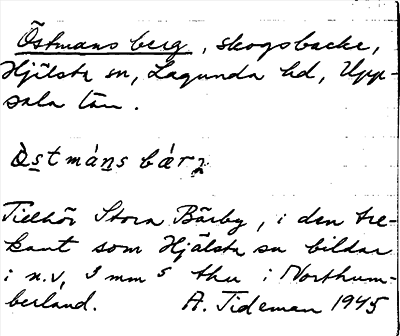 Östmans berg, skogsbacke,
Hjälsta sn, Lagunda hd, Upp-
sala län.
Òstmáns bærj
Tillhör Stora Bärby, i den tre-
kant som Hjälsta sn bildar
i n.v, 9 mm S thu i Northum-
berland. A. Tideman 1945